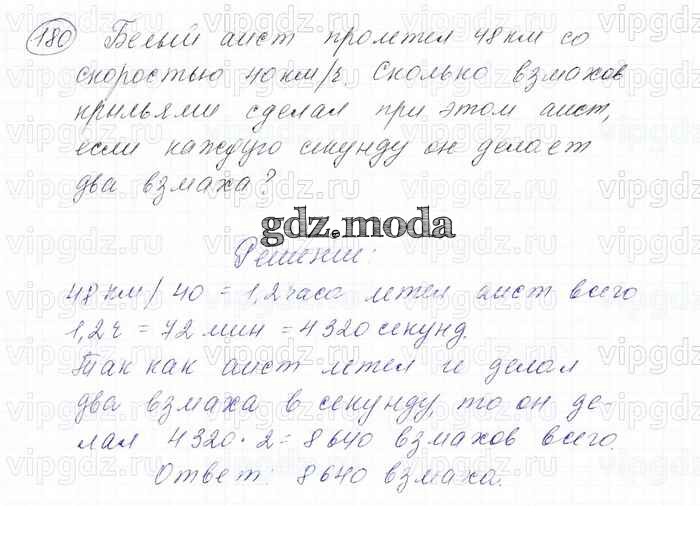 180 Белый аист пролетел 48 км со
скоростью 40 км/ч. Сколько взмахов
крыльями сделал при этом аист,
если каждую секунду он делает
два взмаха?
gdz.moda
Решение:
48 км/40 = 1,2 часа летел аист всего
1,2 ч = 72 мин = 4320 секунд.
Так как аист летел и делал
два взмаха в секунду, то он де-
лал 4320 · 2 = 8640 взмахов всего.
Ответ: 8640 взмаха.